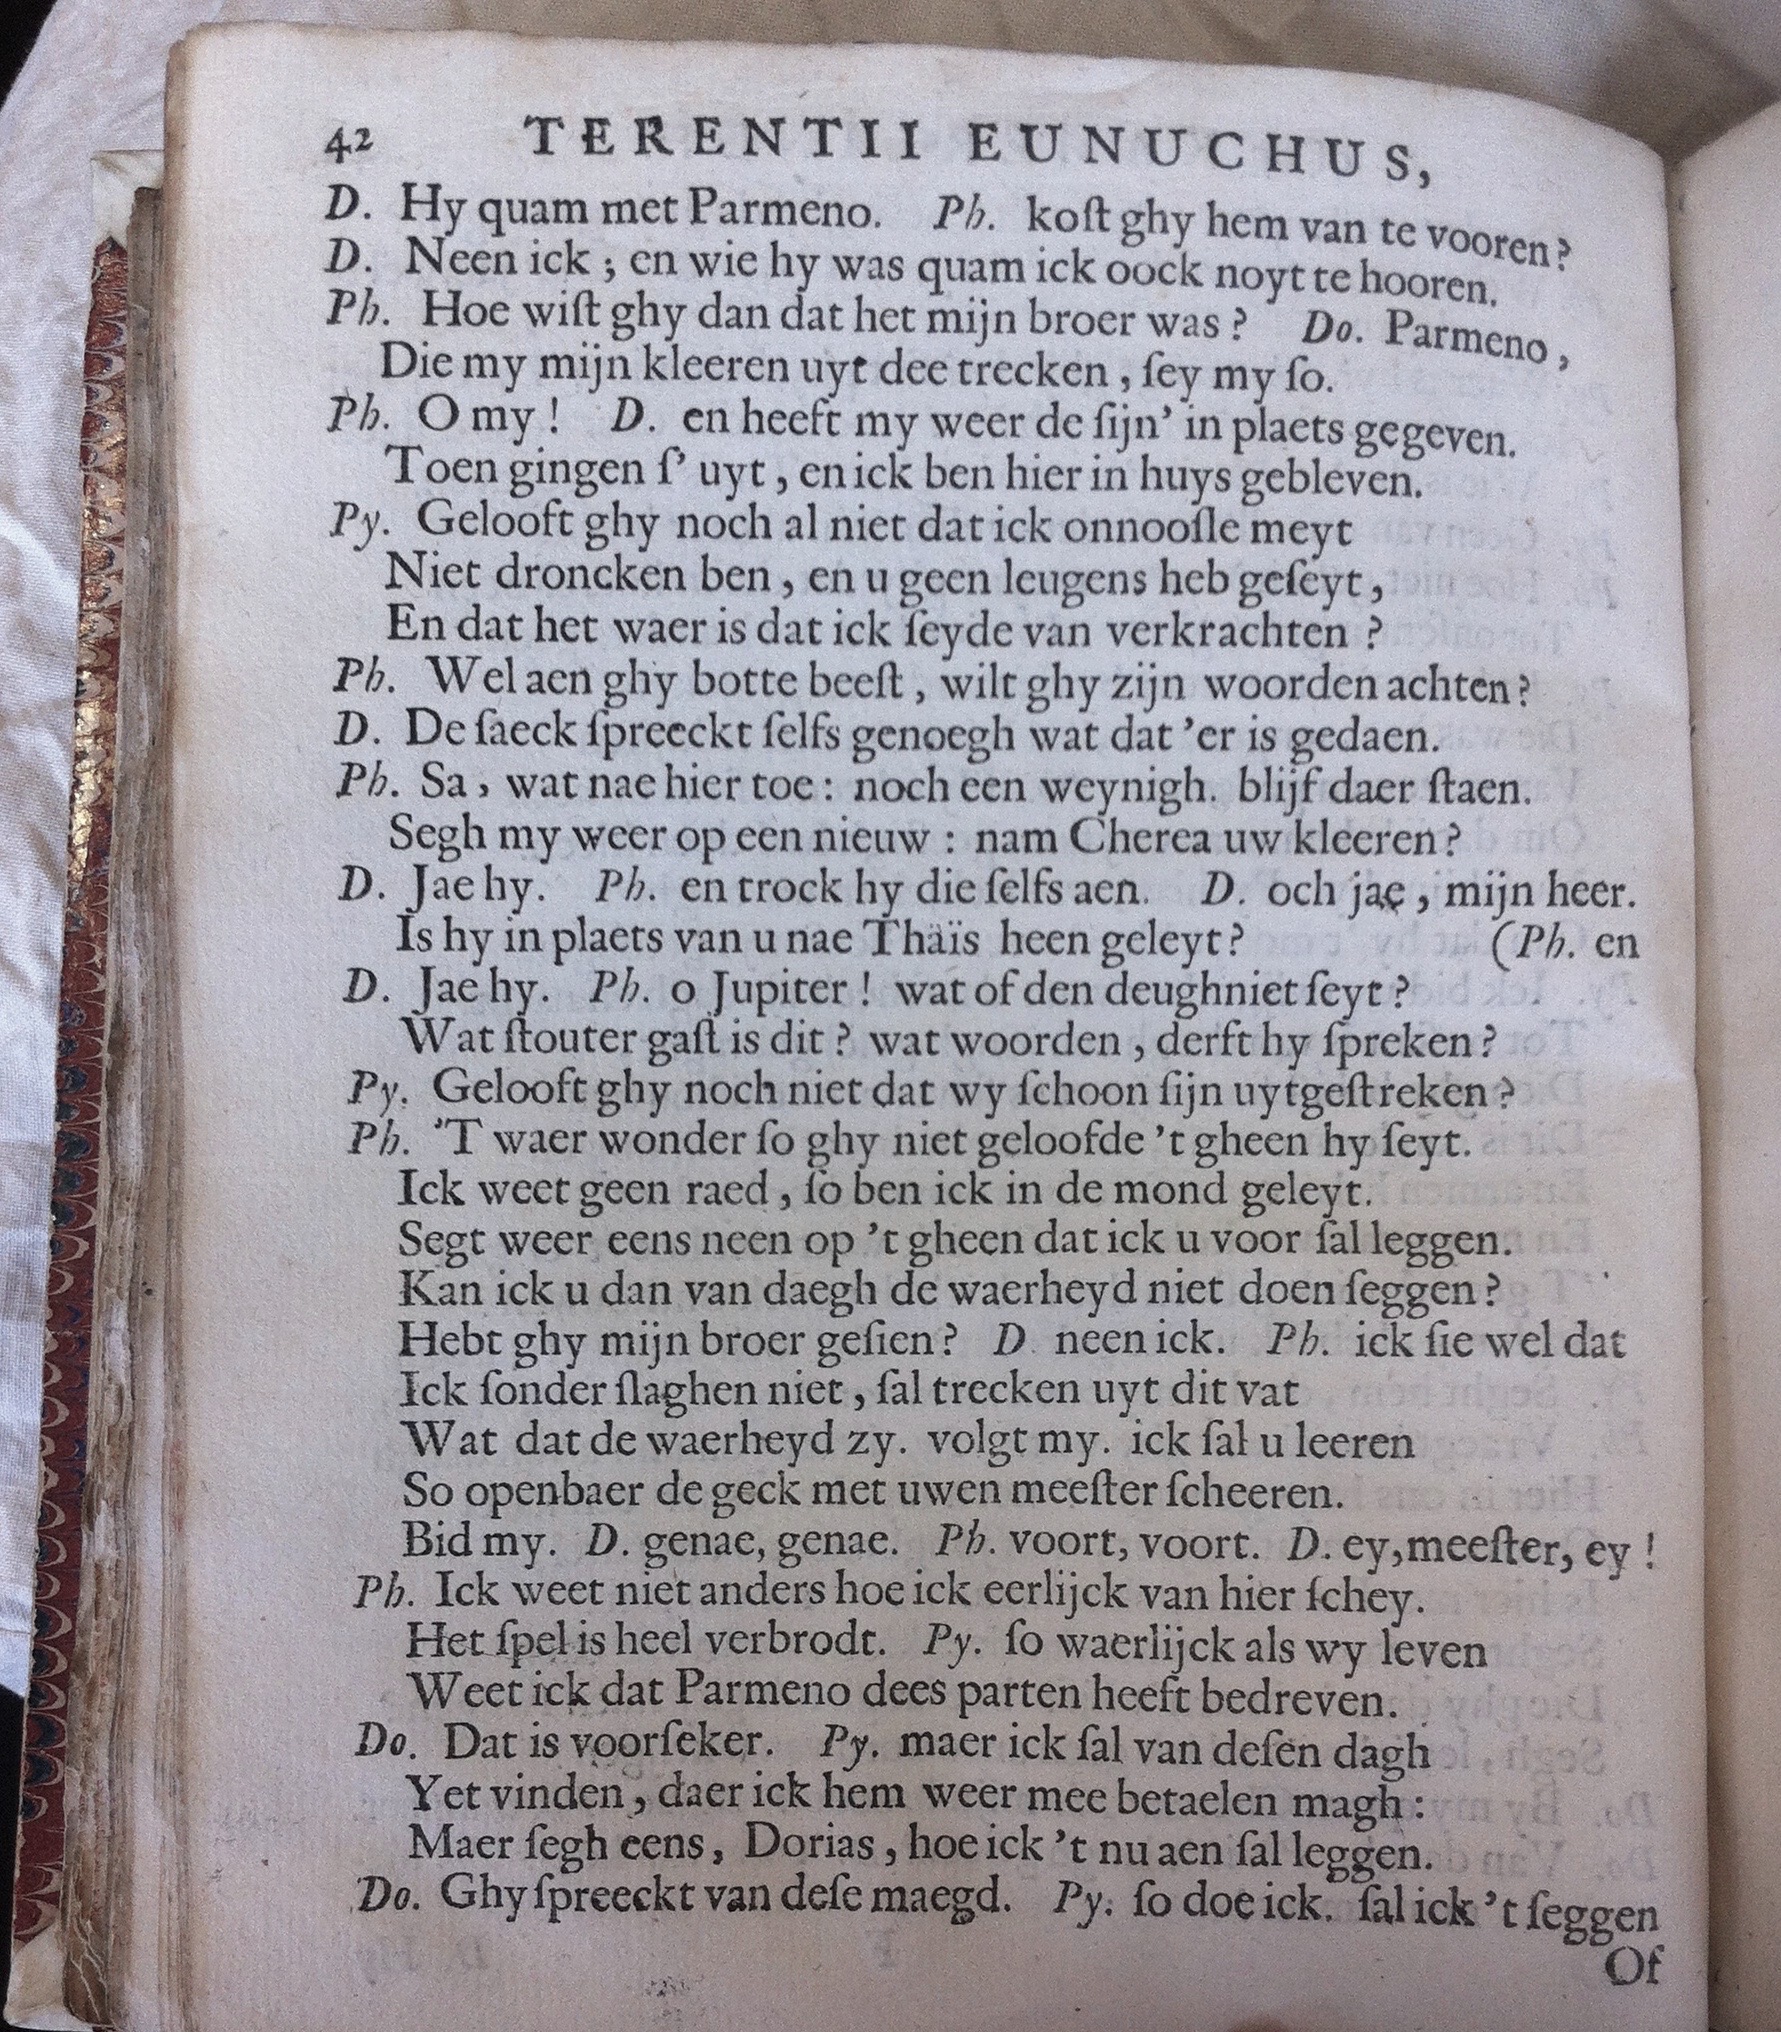 42 TERENTII EUNUCHUS,
D. Hy quam met Parmeno. Ph. koſt ghy hem van te vooren?
D. Neen ick ; en wie hy was quam ick oock noyt te hooren.
Ph. Hoe wiſt ghy dan dat het mijn broer was ? Do. Parmeno ,
Die my mijn kleeren uyt dee trecken , ſey my ſo.
Ph. O my ! D. en heeft my weer de ſijn’ in plaets gegeven.
Toen gingen ſ’ uyt , en ick ben hier in huys gebleven.
Py. Gelooft ghy noch al niet dat ick onnooſle meyt
Niet droncken ben , en u geen leugens heb geſeyt ,
En dat het waer is dat ick ſeyde van verkrachten ?
Ph. Wel aen ghy botte beeſt , wilt ghy zijn woorden achten ?
D. De ſaeck ſpreeckt ſelfs genoegh wat dat ’er is gedaen.
Ph. Sa , wat nae hier toe : noch een weynigh. blijf daer ſtaen.
Segh my weer op een nieuw : nam Cherea uw kleeren ?
D. Jae hy. Ph. en trock hy die ſelfs aen. D. och jae , mijn heer.
Is hy in plaets van u nae Thaïs heen geleyt ? (Ph. en
D. Jae hy. Ph. o Jupiter ! wat of den deughniet ſeyt ?
Wat ſtouter gaſt is dit ? wat woorden , derft hy ſpreken ?
Py. Gelooft ghy noch niet dat wy ſchoon ſijn uytgeſtreken ?
Ph. ’T waer wonder ſo ghy niet geloofde ’t gheen hy ſeyt.
Ick weet geen raed , ſo ben ick in de mond geleyt.
Segt weer eens neen op ’t gheen dat ick u voor ſal leggen.
Kan ick u dan van daegh de waerheyd niet doen ſeggen ?
Hebt ghy mijn broer geſien ? D neen ick. Ph. ick ſie wel dat
Ick ſonder ſlaghen niet , ſal trecken uyt dit vat
Wat dat de waerheyd zy. volgt my. ick ſal u leeren
So openbaer de geck met uwen meeſter ſcheeren.
Bid my. D. genae, genae. Ph. voort, voort. D. ey, meeſter, ey !
Ph. Ick weet niet anders hoe ick eerlijck van hier ſchey.
Het ſpel is heel verbrodt. Py. ſo waerlijck als wy leven
Weet ick dat Parmeno dees parten heeft bedreven.
Do. Dat is voorſeker. Py. maer ick ſal van deſen dagh
Yet vinden , daer ick hem weer mee betaelen magh :
Maer ſegh eens , Dorias , hoe ick ’t nu aen ſal leggen.
Do. Ghy ſpreeckt van deſe maegd. Py. ſo doe ick. ſal ick ’t ſeggen
Of